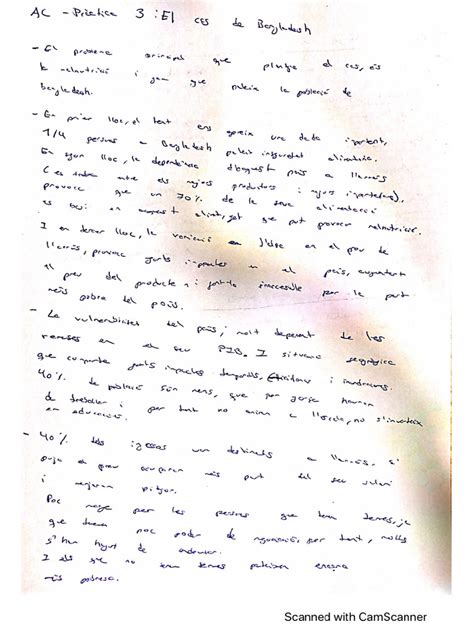 AC - Pràctica 3: El cas de Bangladesh
- El problema principal que planteja el cas, és
la malnutrició i fam que pateix la població de
bangladesh.
- En primer lloc, el text ens aporta una dada important,
1/4 persones a Bangladesh pateix inseguretat alimentària.
En segon lloc, la dependència d'aquest país a l'arròs
(es troba entre els majors productors i majors importadors),
provoca que un 70% de la seva alimentació
es basi en aquest aliment, fet que pot provocar malnutrició.
I en tercer lloc, la variació en l'alça en el preu de
l'arròs, provoca forts impactes en el país, augmentant
el preu del producte i fent-lo inaccessible per la part
més pobre del país.
- La vulnerabilitat del país, molt depenent de les
en el seu PIB. I situació geogràfica
que comporta forts impactes temporals, i inundacions.
40% de població són nens, que per força hauran
de treballar i per tant no aniran a l'escola, no s'inverteix
en educació.
- 40% dels ingressos van destinats a l'arròs, si
puja el preu ocuparan més part del seu salari
i menjaran pitjor.
Poc marge per les persones que tenen terres, ja
que tenen poc poder de negociació, per tant, molts
s'han hagut de
I els que no tenen terres pateixen encara
més pobresa.
Scanned with CamScanner